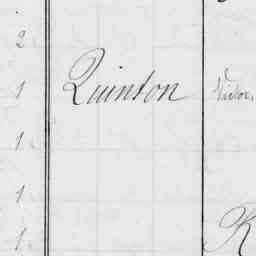 2
1 Quinton Victor,
1
1
1 R